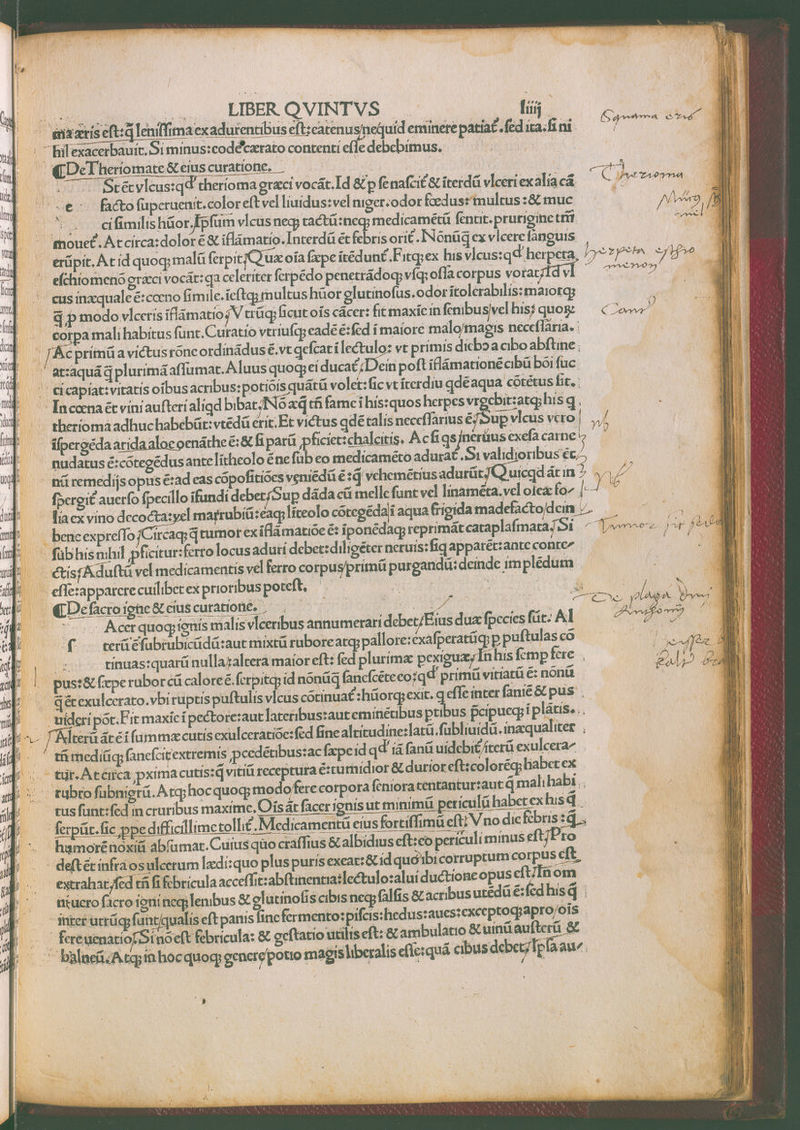 LIBER QVINTVS liiij
ma æris est:q̃ lenissima ex adurentibus est:eatenus/nequid eminere patiat̃.sed ita.si ni
hil exacerbauit.Si minus:eo de cærato contenti esse debebimus.
De Theriomate & eius curatione.
St ẽt vlcus:qd' therioma græci vocãt.Id & p se nascit̃ & iterdũ vlceri ex alia cã
e facto superuenit.color est vel liuidus:vel niger.odor fœdus:multus:& muc
ci similis hũor.Ipsum vlcus neq; tactũ:neq; medicamẽtũ sentit.prurigine tm̃
mouet̃.At circa:dolor ẽ & iflãmatio.Interdũ ẽt febris orit̃.Nõnũq̃ ex vlcere sanguis
erũpit.At id quoq; malũ serpit/Quæ oĩa sæpe itẽdunt̃.Fitq; ex his vlcus:qd' herpeta
eschiomenõ græci vocãt:qa celeriter serpẽdo penetrãdoq; vsq; ossa corpus vorat/Id vl
cus inæquale ẽ:cœno simile.iestq; multus hũor glutinosus.odor itolerabilis:maiorq;
q̃ p modo vlceris iflãmatio/Vtrũq; sicut oĩs cãcer: fit maxie in senibus/vel his: quoꝝ
corpa mali habitus sunt.Curatio vtriusq; eadẽ ẽ:sed i maiore malo/magis necessaria.
Ac primũ a victus rõne ordinãdus ẽ.vt qescat i lectulo: vt primis dieb9 a cibo abstine
at:aquã q̃ plurimã assumat.Aluus quoq; ei ducat̃/Dein post iflãmationẽ cibũ bõi suc
ci capiat:vitatis oĩbus acribus:potiõis quãtũ volet:sic vt iterdiu qdẽ aqua cõtẽtus sit.
In cœna ẽt vini austeri aliqd bibat.Nõ æq̃ tñ fame i his:quos herpes vrgebit:atq; his q
therioma adhuc habebũt:vtẽdũ erit.Et victus qdẽ talis necessarius ẽ/Sup vlcus vero
ispergẽda arida aloe oenãthe ẽ:& si parũ pficiet:chalcitis. Ac si qs/neruus exesa carne
nudatus ẽ:cõtegẽdus ante litheolo ẽ ne sub eo medicamẽto adurat̃.Si validioribus ẽt
nũ remedijs opus ẽ:ad eas cõpositiões veniẽdũ ẽ:q̃ vehemẽtius adurũt/Quicqd ãt in
spergit̃ auerso specillo ifundi debet/Sup dãda cũ melle sunt vel linamẽta.vel oleæ fo
lia ex vino decocta:vel marrubiũ:eaq; liteolo cõtegẽda i aqua frigida madefacto/dein
bene expresso/Circaq; q̃ tumor ex iflãmatiõe ẽ: iponẽdaq; reprimãt cataplasmata/Si
sub his nihil pficitur:ferro locus aduri debet:diligẽter neruis:siq apparẽt:ante conte
ctis/Adustũ vel medicamentis vel ferro corpus/primũ purgandũ: deinde implẽdum
esse:apparere cuilibet ex prioribus potest.
De sacro igne & eius curatione.
Acer quoq; ignis malis vlceribus annumerari debet/Eius duæ species sũt: Al
f terũ ẽ subrubicũdũ:aut mixtũ rubore atq; pallore:exasperatũq; p pustulas cõ
tinuas:quarũ nulla:altera maior est: sed plurimæ pexiguæ/In his semp fere
pus:& sæpe rubor cũ calore ẽ.serpitq; id nõnũq̃ sanescẽte eo:qd' primũ vitiatũ ẽ: nõnũ
q̃ ẽt exulcerato.vbi ruptis pustulis vlcus cõtinuat̃:hũorq; exit.q esse inter saniẽ & pus
uideri põt.Fit maxie i pectore:aut lateribus:aut eminẽtibus ptibus pcipueq; i plãtis.
Alterũ ãt ẽ i summæ cutis exulceratiõe:sed sine altitudine:latũ.subliuidũ.inæqualiter
tñ mediũq; sanescit extremis pcedẽtibus:ac sæpe id qd' iã sanũ uidebit̃/iterũ exulcera
tur.At circa pxima cutis:q̃ vitiũ receptura ẽ:tumidior & durior est:colorẽq; habet ex
rubro subnigrũ.Atq; hoc quoq; modo fere corpora seniora tentantur:aut q̃ mali habi
tus sunt:sed in cruribus maxime.Oĩs ãt sacer ignis ut minimũ periculũ habet ex his q̃
serpũt.sic ppe difficillime tollit̃.Medicamentũ eius fortissimũ est: Vno die febris :q̃
humorẽ noxiũ absumat.Cuius quo crassius & albidius est:eo periculi minus est/Pro
dest ẽt infra os ulcerum lædi:quo plus puris exeat:& id quod ibi corruptum corpus est
extrahat/sed tñ si febricula accessit:abstinentia:lectulo:alui ductione opus est/In om
ni uero sacro igni neq; lenibus & glutinosis cibis neq; salsis & acribus utẽdũ ẽ:sed his q̃
inter utrũq; sunt/qualis est panis sine fermento:pifcis:hedus:aues:exceptoq; apro/oĩs
fere uenatio/Si nõ est febricula: & gestatio utilis est: & ambulatio & uinũ austerũ &
balneũ.Atq; in hoc quoq; genere/potio magis liberalis esse:quã cibus debet/Ipsa au
Squama eris
Therioma